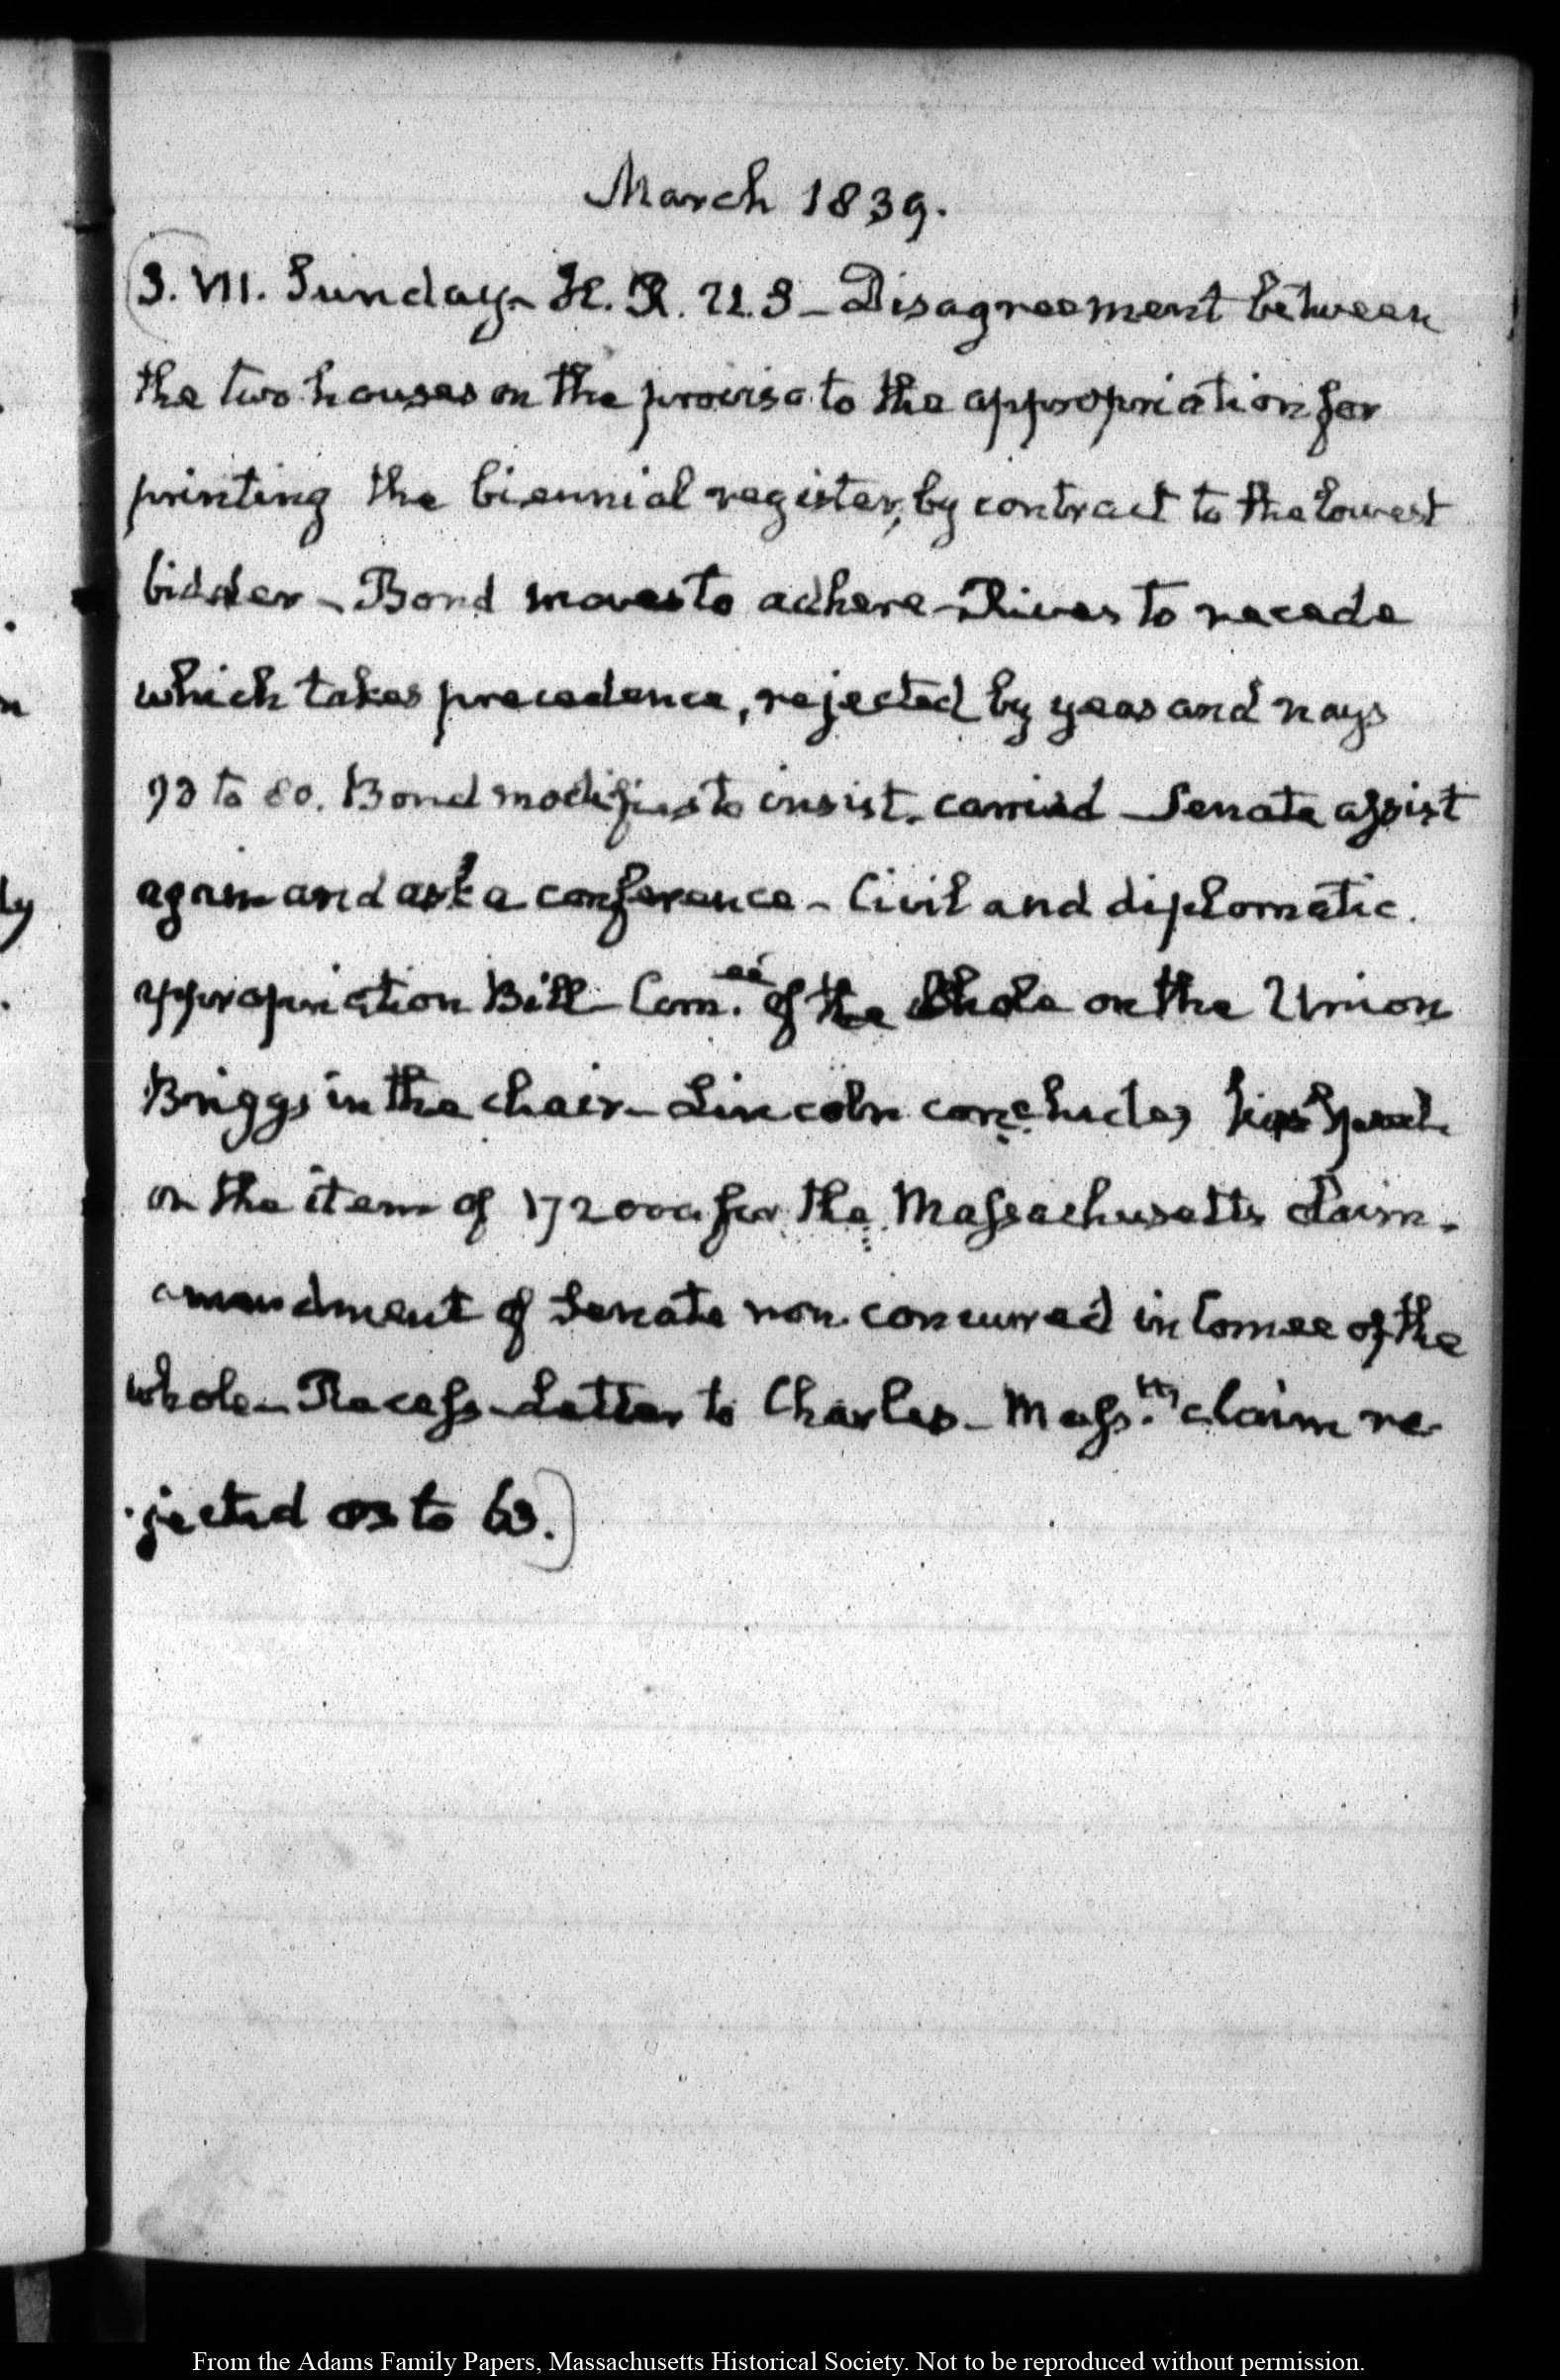 March 1839.
(3. VII. Sunday- H. R. U. S - Disagreement between
the two houses on the proviso to the appropriation for
printing the biennial register, by contract to the lowest
bidder - Bond moves to adhere - Rives to recede
which takes precedence, rejected by yeas and nays
to 80. Bond modifies to insist. carried - Senate assist
again and ask a conference - Civil and diplomatic.
appropriation Bill - Com.ee of the Whole on the Union
Briggs in the chair - Lincoln concludes his speech
on the item of 172000 for the Massachusetts claim -
amendment of Senate non-concurred in Comee of the
whole - Recess - Letter to Charles - Mass.tts claim re-
-jected to 63.)
ly
From the Adams Family Papers, Massachusetts Historical Society. Not to be reproduced without permission.